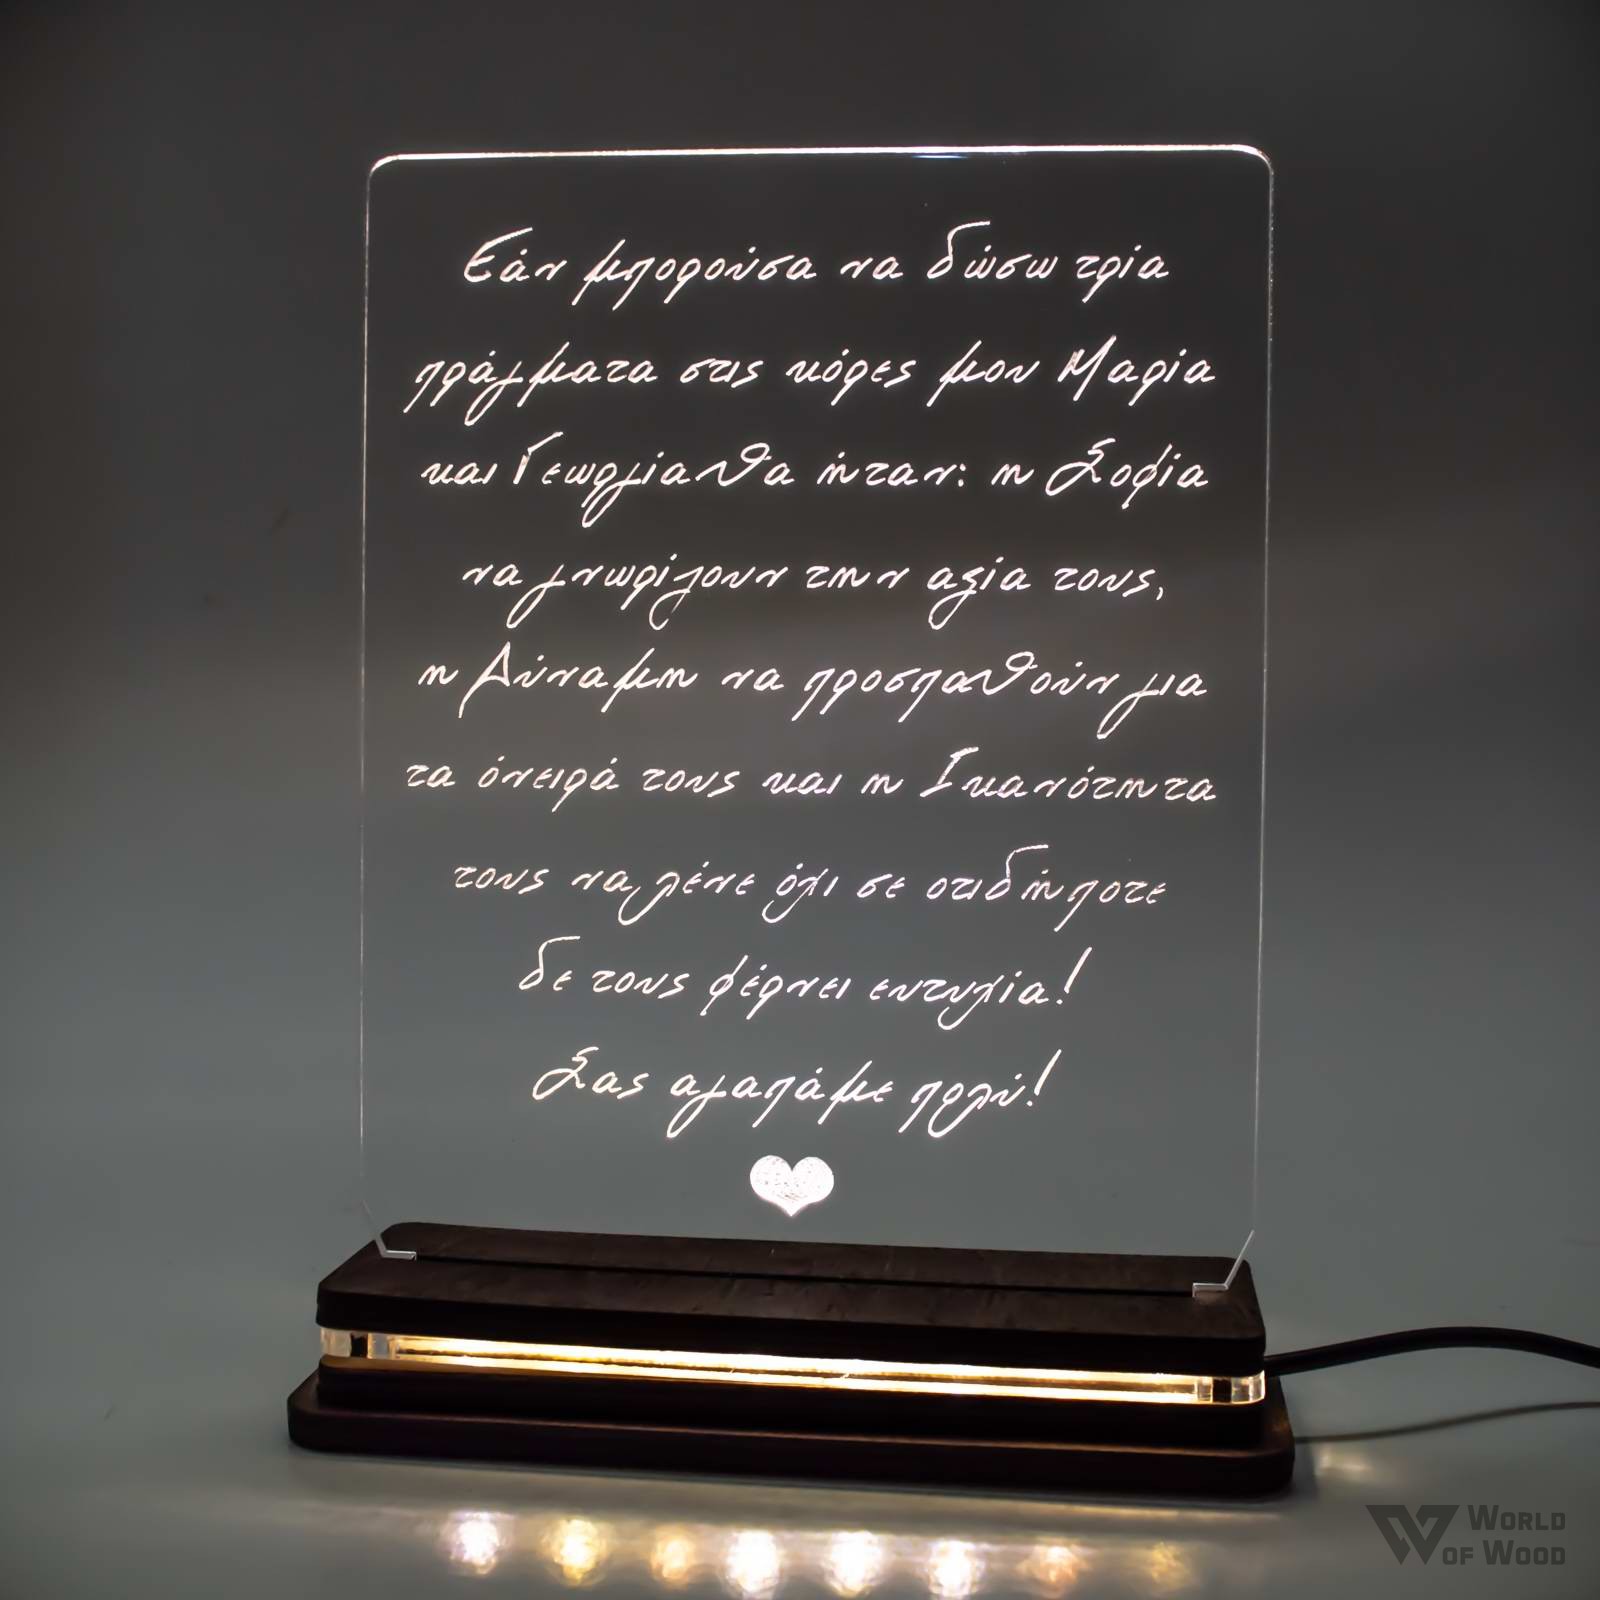 Εάν μπορούσα να δώσω τρία
πράγματα στις κόρες μου Μαρία
και Γεωργία θα ήταν: η Σοφία
να γνωρίζουν την αξία τους,
η Δύναμη να προσπαθούν για
τα όνειρά τους και η Ικανότητα
τους να λένε όχι σε οτιδήποτε
δε τους φέρνει ευτυχία!
Σας αγαπάμε πολύ!
WORLD
OF WOOD